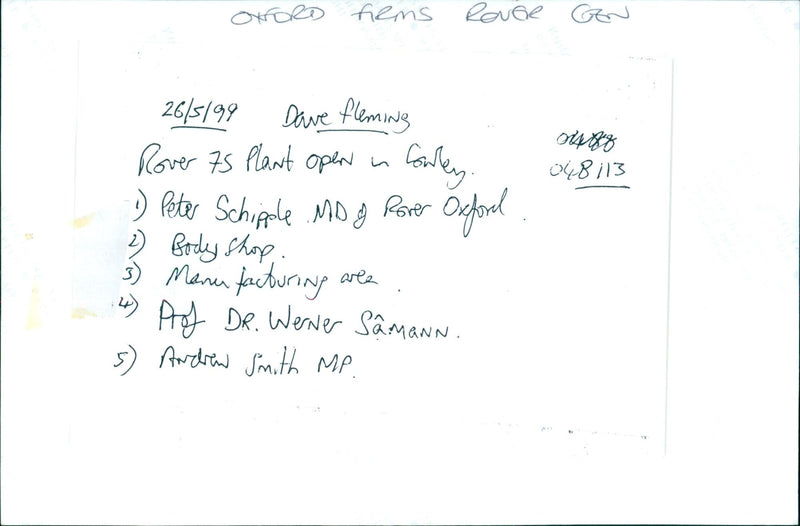 OXFORD FIRMS ROVER GEN
26/5/99 Dave Fleming
Rover 75 Plant open in Cowley.
048113
1) Peter Schipple MD of Rover Oxford.
2) Body shop.
3) Manufacturing area.
4) Prof DR. Werner SâMANN.
5) Andrew Smith MP.